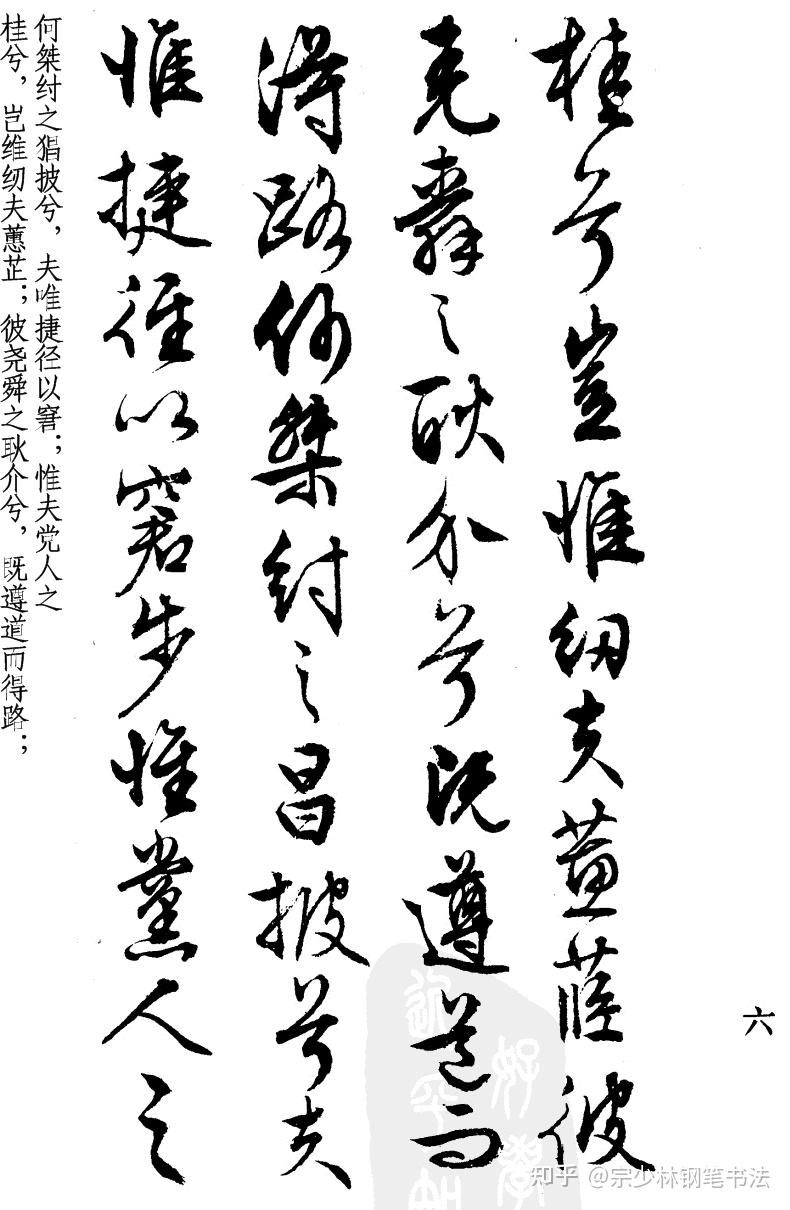 六
桂兮豈惟紉夫蕙茝彼
堯舜之耿介兮既遵道而
得路何桀紂之昌披兮夫
惟捷徑以窘步惟黨人之
何桀纣之猖披兮，夫唯捷径以窘；惟夫党人之
桂兮，岂维纫夫蕙芷；彼尧舜之耿介兮，既遵道而得路；
知乎 @宗少林钢笔书法